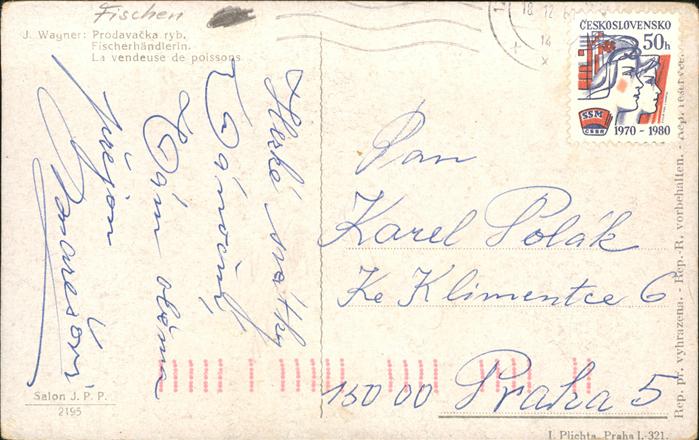 Fischen
J. Wagner: Prodavačka ryb.
Fischerhändlerin.
La vendeuse de poissons.
Hezké svátky
Vánoční
Vám oběma
přejou
18 12
14
ČESKOSLOVENSKO
50h
SSM
ČSSR
1970 - 1980
Pan
Karel Polák
Ke Klimentce 6
150 00 Praha 5
Salon J. P. P.
2195
I. Plichta, Praha I.-321.
Rep. př. vyhrazena. - Rep.-R. vorbehalten. - Rep. réservée.